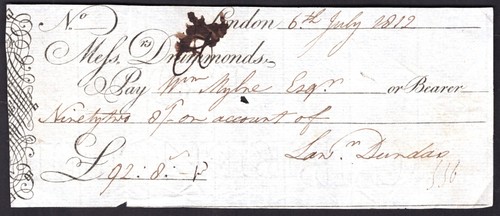 No London 6th July 1812
Messrs Drummonds.
Pay Wm Mylne Esqr or Bearer
Ninety two 8/- on account of
£92:8:- Lawr. Dundas